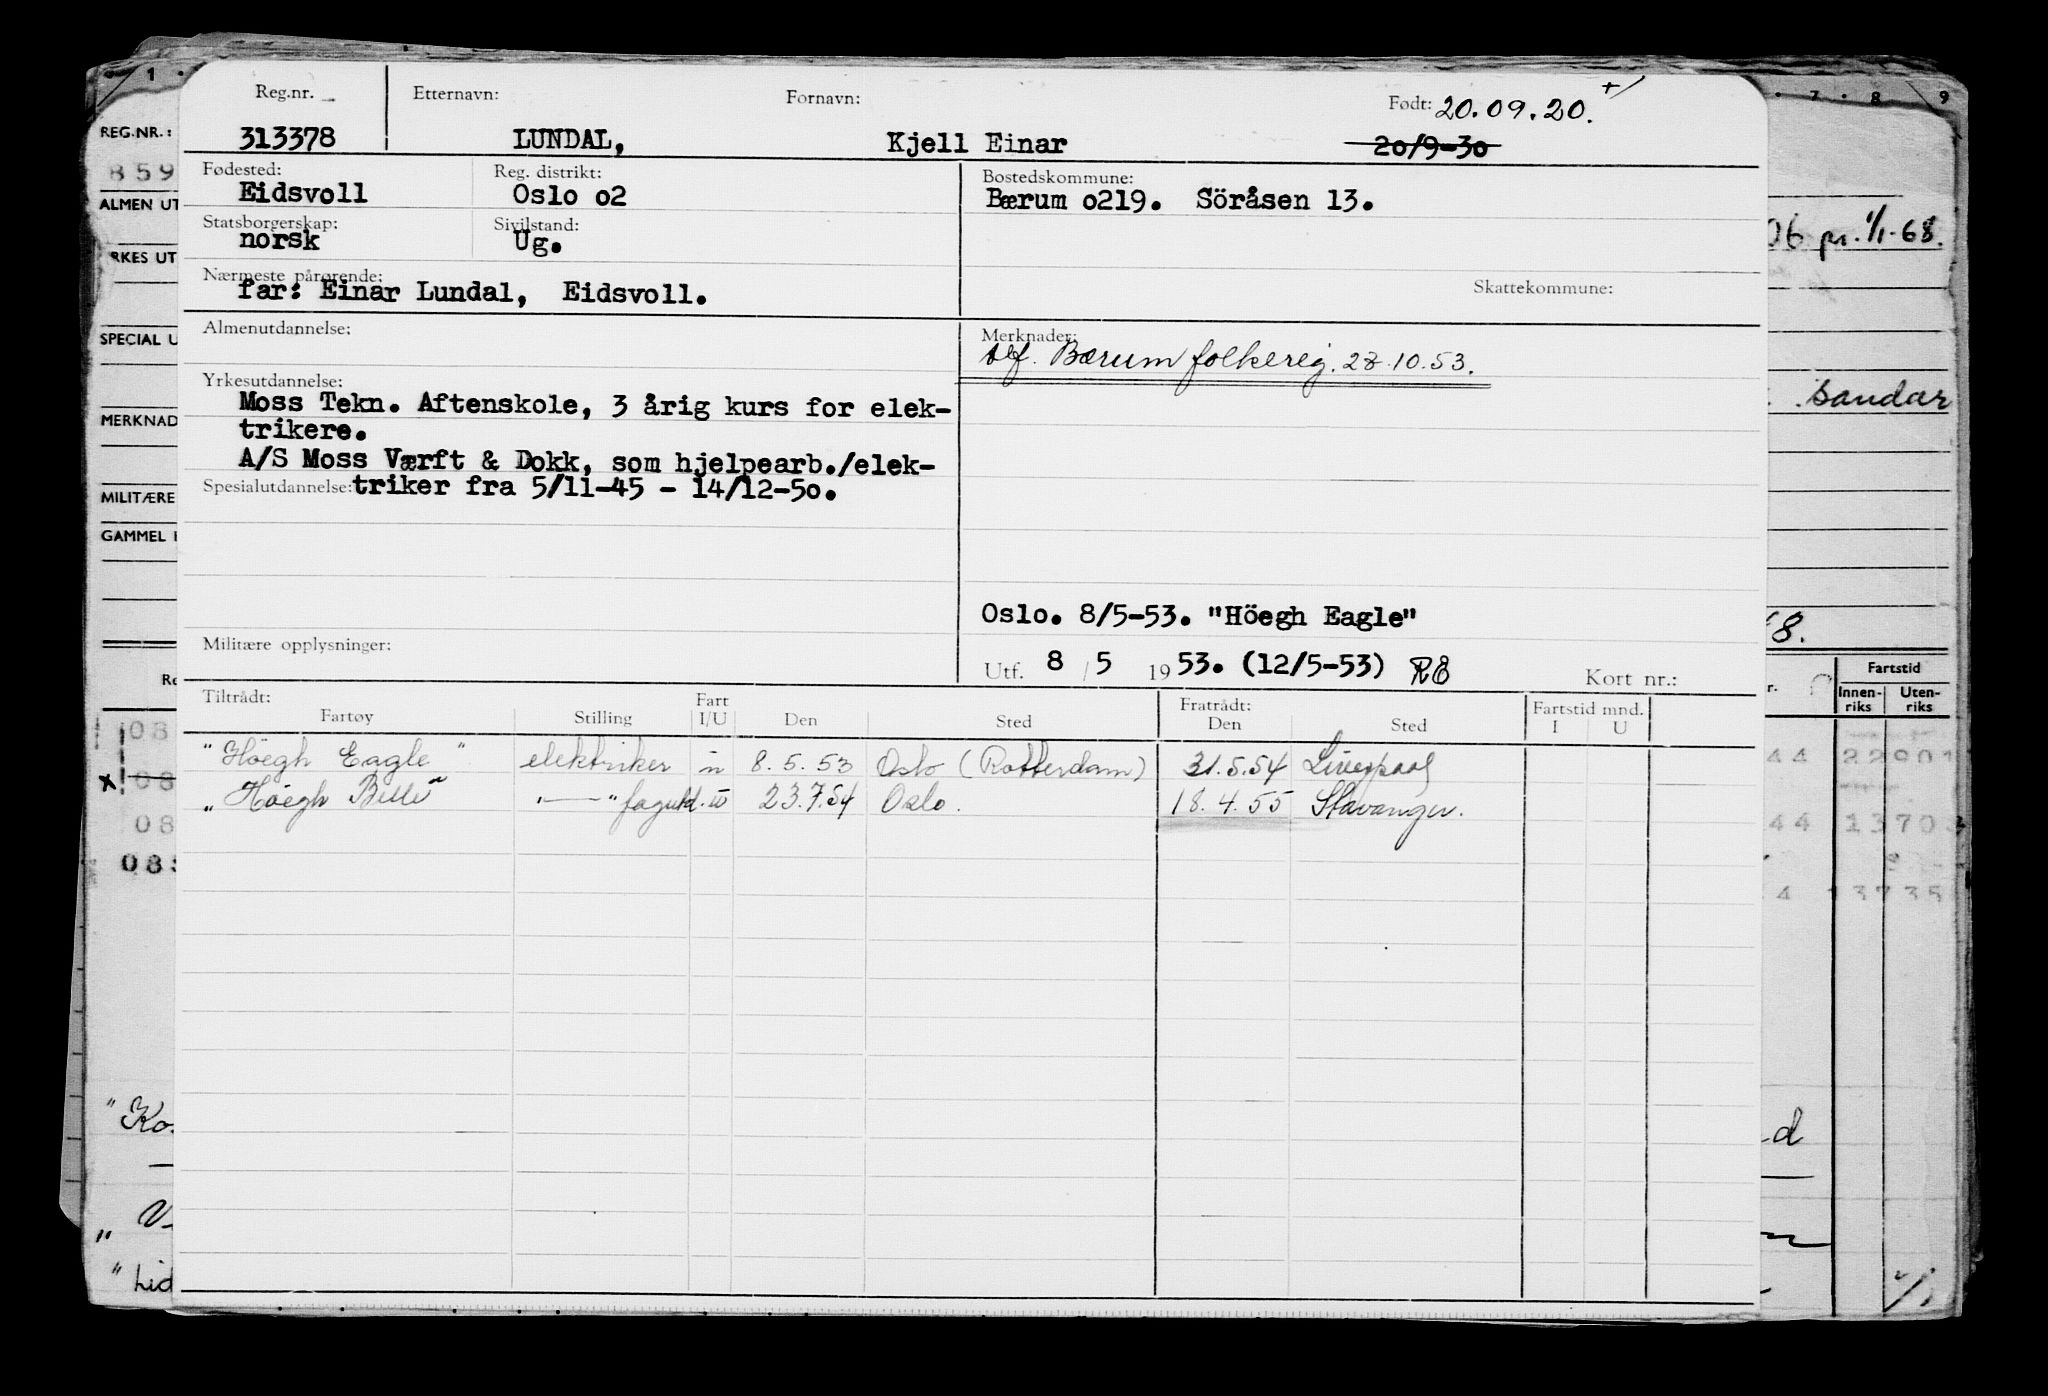 Reg.nr. Etternavn: Fornavn: Født: 20.09.20. +/
313378 LUNDAL, Kjell Einar 20/9-30
Fødested: Reg. distrikt: Bostedskommune:
Eidsvoll Oslo o2 Bærum o219. Söråsen 13.
Statsborgerskap: Sivilstand:
norsk Ug.
Nærmeste pårørende: Skattekommune:
far: Einar Lundal, Eidsvoll.
Almenutdannelse: Merknader:
Bærum folkereg. 28.10.53.
Yrkesutdannelse:
Moss Tekn. Aftenskole, 3 årig kurs for elek-
trikere.
A/S Moss Værft & Dokk, som hjelpearb./elek-
Spesialutdannelse: triker fra 5/11-45 - 14/12-5o.
Oslo. 8/5-53. "Höegh Eagle"
Militære opplysninger:
Utf. 8 / 5 1953. (12/5-53) RØ Kort nr.:
Tiltrådt: Fart Fratrådt: Fartstid mnd.
Fartøy Stilling I/U Den Sted Den Sted I U
"Höegh Eagle" elektriker u 8.5.53 Oslo (Rotterdam) 31.5.54 Liverpool
"Höegh Belle" -"- u 23.7.54 Oslo. 18.4.55 Stavanger.
REG.NR.:
859
ALMEN UT
RKES UT
SPECIAL U
MERKNAD
MILITÆRE
GAMMEL
08
08
08
"Ko
"Lid
06 pr. 1/1-68.
Sandar
8.
Fartstid
Innen-
riks
Uten-
riks
44 22901
44 13703
4 13735
1 7 8 9